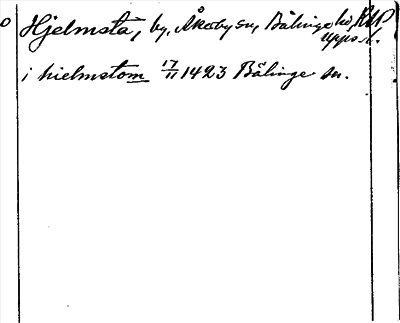 Hjelmsta, by, Åkerby sn, Bälinge hd, RUP
Upps. l.
i hielmstom 17/11 1423 Bälinge sn.